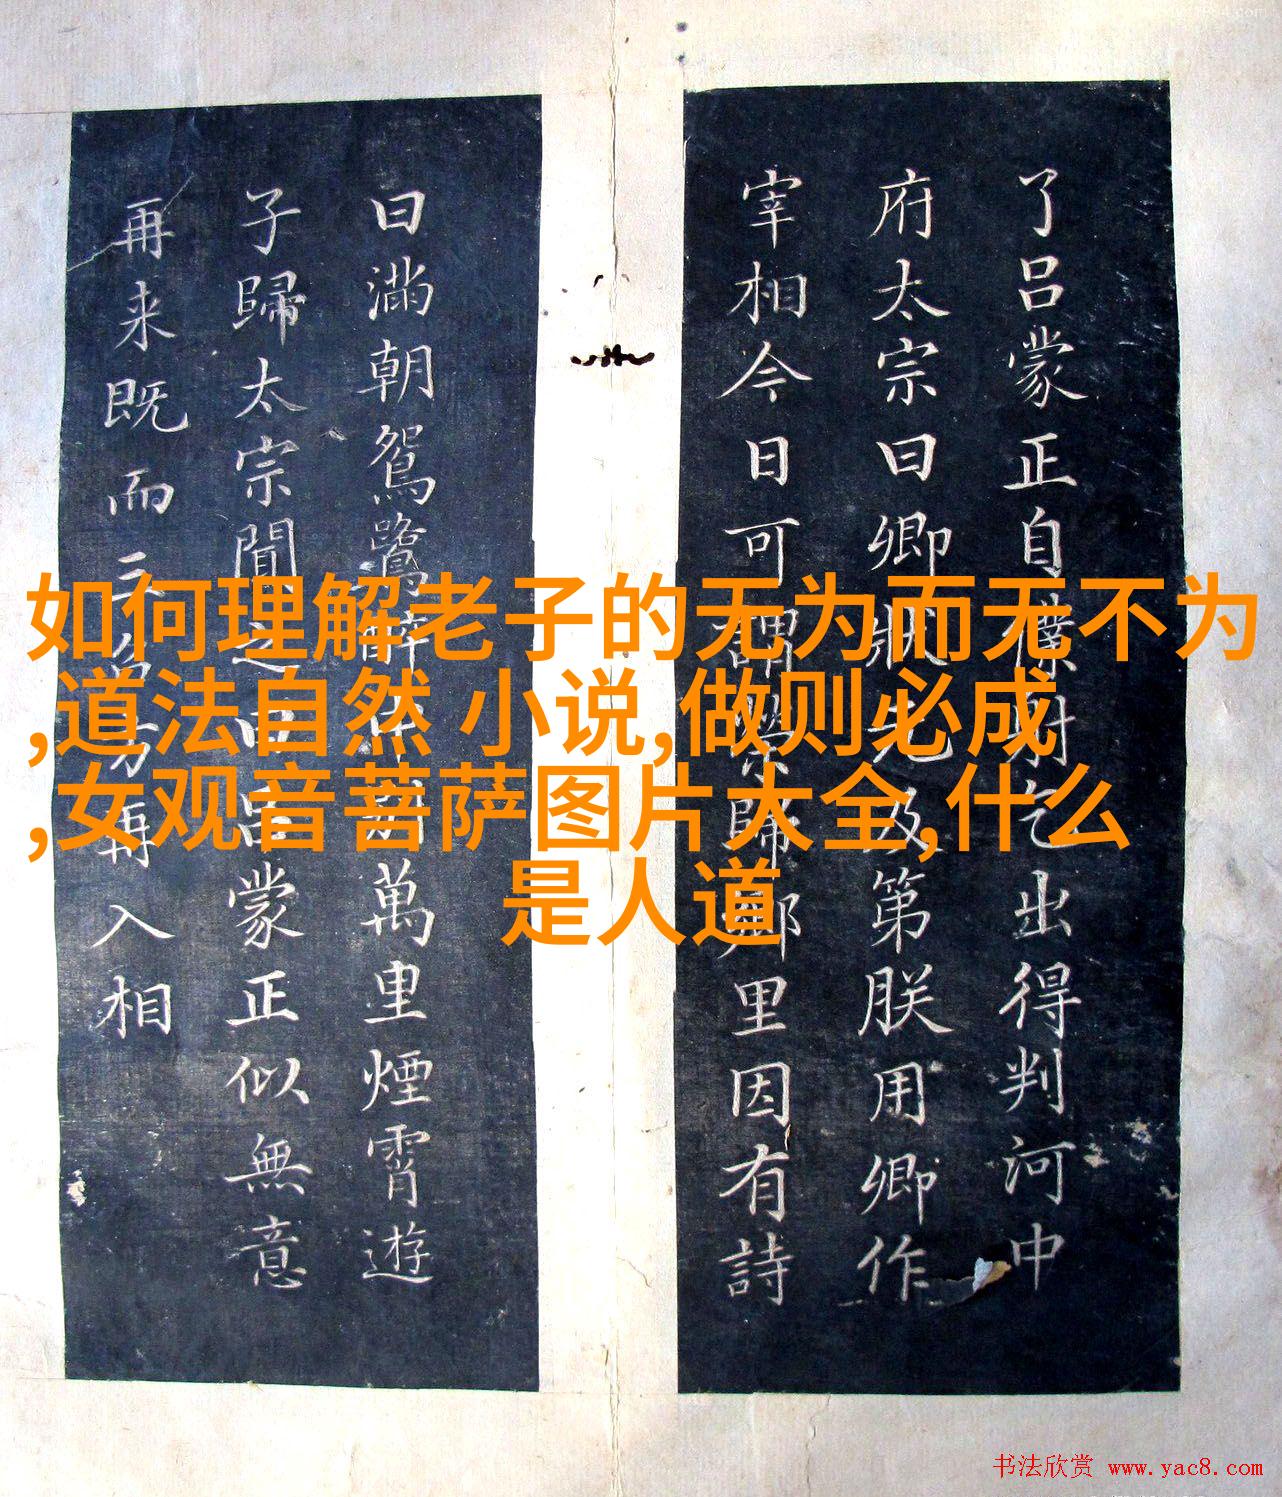 了吕蒙正自僕射乞出得判河中
府太宗曰卿状先及第朕用卿作
宰相今日可謂榮歸鄉里因有詩
曰滿朝鴛鷺醉中別萬里煙霄遊
子歸太宗聞之曰吕蒙正似無意
再来既而
再入相
如何理解老子的无为而无不为
,道法自然 小说,做则必成
,女观音菩萨图片大全,什么
是人道
书法欣赏 www.yac8.com